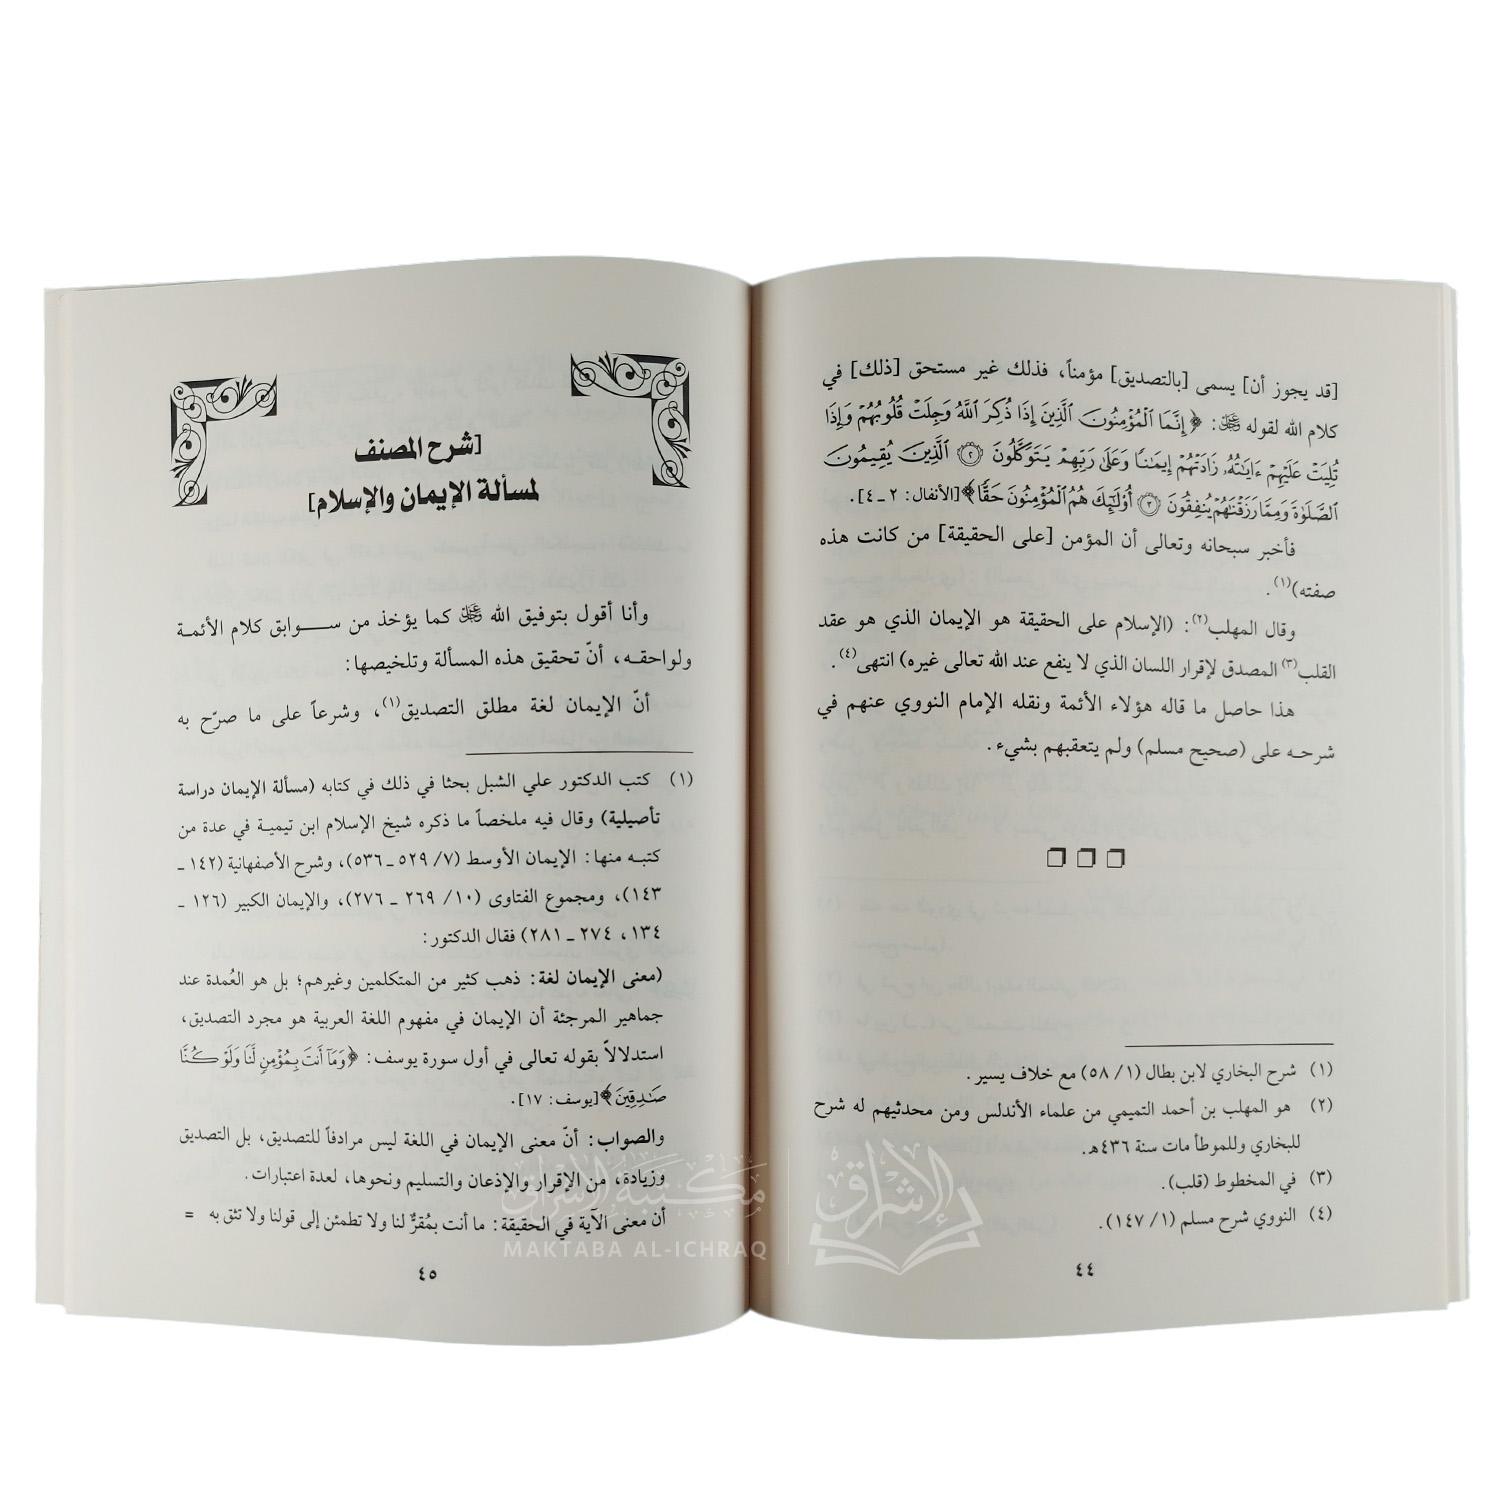 [قد يجوز أن] يسمى [بالتصديق] مؤمناً، فذلك غير مستحق [ذلك] في
كلام الله لقوله ﷻ: ﴿إِنَّمَا ٱلْمُؤْمِنُونَ ٱلَّذِينَ إِذَا ذُكِرَ ٱللَّهُ وَجِلَتْ قُلُوبُهُمْ وَإِذَا
تُلِيَتْ عَلَيْهِمْ ءَايَٰتُهُۥ زَادَتْهُمْ إِيمَٰنًا وَعَلَىٰ رَبِّهِمْ يَتَوَكَّلُونَ ٢ ٱلَّذِينَ يُقِيمُونَ
ٱلصَّلَوٰةَ وَمِمَّا رَزَقْنَٰهُمْ يُنفِقُونَ ٣ أُو۟لَٰٓئِكَ هُمُ ٱلْمُؤْمِنُونَ حَقًّا﴾[الأنفال: ٢ ـ ٤].
فأخبر سبحانه وتعالى أن المؤمن [على الحقيقة] من كانت هذه
صفته)(١).
وقال المهلب(٢): (الإسلام على الحقيقة هو الإيمان الذي هو عقد
القلب(٣) المصدق لإقرار اللسان الذي لا ينفع عند الله تعالى غيره) انتهى(٤).
هذا حاصل ما قاله هؤلاء الأئمة ونقله الإمام النووي عنهم في
شرحه على (صحيح مسلم) ولم يتعقبهم بشيء.
(١) شرح البخاري لابن بطال (١/ ٥٨) مع خلاف يسير.
(٢) هو المهلب بن أحمد التميمي من علماء الأندلس ومن محدثيهم له شرح
للبخاري وللموطأ مات سنة ٤٣٦هـ.
(٣) في المخطوط (قلب).
(٤) النووي شرح مسلم (١/ ١٤٧).
٤٤
[شرح المصنف
لمسألة الإيمان والإسلام]
وأنا أقول بتوفيق الله ﷻ كما يؤخذ من سوابق كلام الأئمة
ولواحقه، أنّ تحقيق هذه المسألة وتلخيصها:
أنّ الإيمان لغة مطلق التصديق(١)، وشرعاً على ما صرّح به
(١) كتب الدكتور علي الشبل بحثا في ذلك في كتابه (مسألة الإيمان دراسة
تأصيلية) وقال فيه ملخصاً ما ذكره شيخ الإسلام ابن تيمية في عدة من
كتبه منها: الإيمان الأوسط (٧/ ٥٢٩ ـ ٥٣٦)، وشرح الأصفهانية (١٤٢ ـ
١٤٣)، ومجموع الفتاوى (١٠/ ٢٦٩ ـ ٢٧٦)، والإيمان الكبير (١٢٦ ـ
١٣٤، ٢٧٤ ـ ٢٨١) فقال الدكتور:
(معنى الإيمان لغة: ذهب كثير من المتكلمين وغيرهم؛ بل هو العُمدة عند
جماهير المرجئة أن الإيمان في مفهوم اللغة العربية هو مجرد التصديق،
استدلالاً بقوله تعالى في أول سورة يوسف: ﴿وَمَآ أَنتَ بِمُؤْمِنٍ لَّنَا وَلَوْ كُنَّا
صَٰدِقِينَ﴾[يوسف: ١٧].
والصواب: أنّ معنى الإيمان في اللغة ليس مرادفاً للتصديق، بل التصديق
وزيادة، من الإقرار والإذعان والتسليم ونحوها، لعدة اعتبارات.
أن معنى الآية في الحقيقة: ما أنت بمُقرٍّ لنا ولا تطمئن إلى قولنا ولا تثق به =
٤٥
مكتبة الإشراق
MAKTABA AL-ICHRAQ
الإشراق